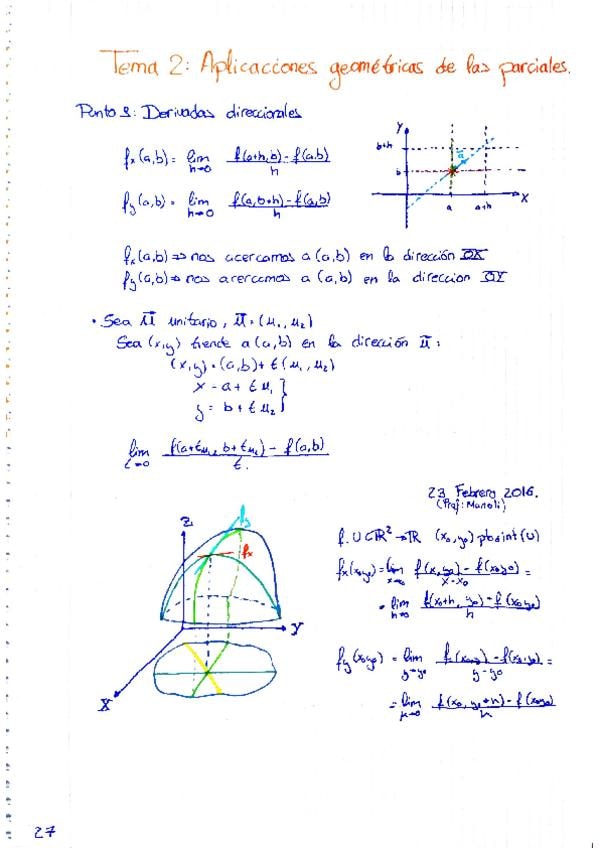 Tema 2: Aplicaciones geométricas de las parciales.
Punto 8: Derivadas direccionales
fx(a,b) = lim h→0 f(a+h,b) - f(a,b) / h
fy(a,b) = lim h→0 f(a,b+h) - f(a,b) / h
Y
b+h
b
ū
a
a+h
X
fx(a,b) ⇒ nos acercamos a (a,b) en la dirección OX
fy(a,b) ⇒ nos acercamos a (a,b) en la direccion OY
• Sea ū unitario, ū = (u₁, u₂)
Sea (x,y) tiende a (a,b) en la dirección ū:
(x,y) = (a,b) + t(u₁, u₂)
x = a + t u₁
y = b + t u₂ }
lim t→0 f(a+tu₁, b+tu₂) - f(a,b) / t.
23 Febrero 2016.
(Prof: Manoli)
f: U⊂ℝ² → ℝ (x₀,y₀) pto int(U)
fx(x₀,y₀) = lim x→x₀ f(x,y₀) - f(x₀,y₀) / x - x₀ =
= lim h→0 f(x₀+h, y₀) - f(x₀,y₀) / h
fy(x₀,y₀) = lim y→y₀ f(x₀,y) - f(x₀,y₀) / y - y₀ =
= lim h→0 f(x₀, y₀+h) - f(x₀,y₀) / h
Z
fy
fx
Y
X
27